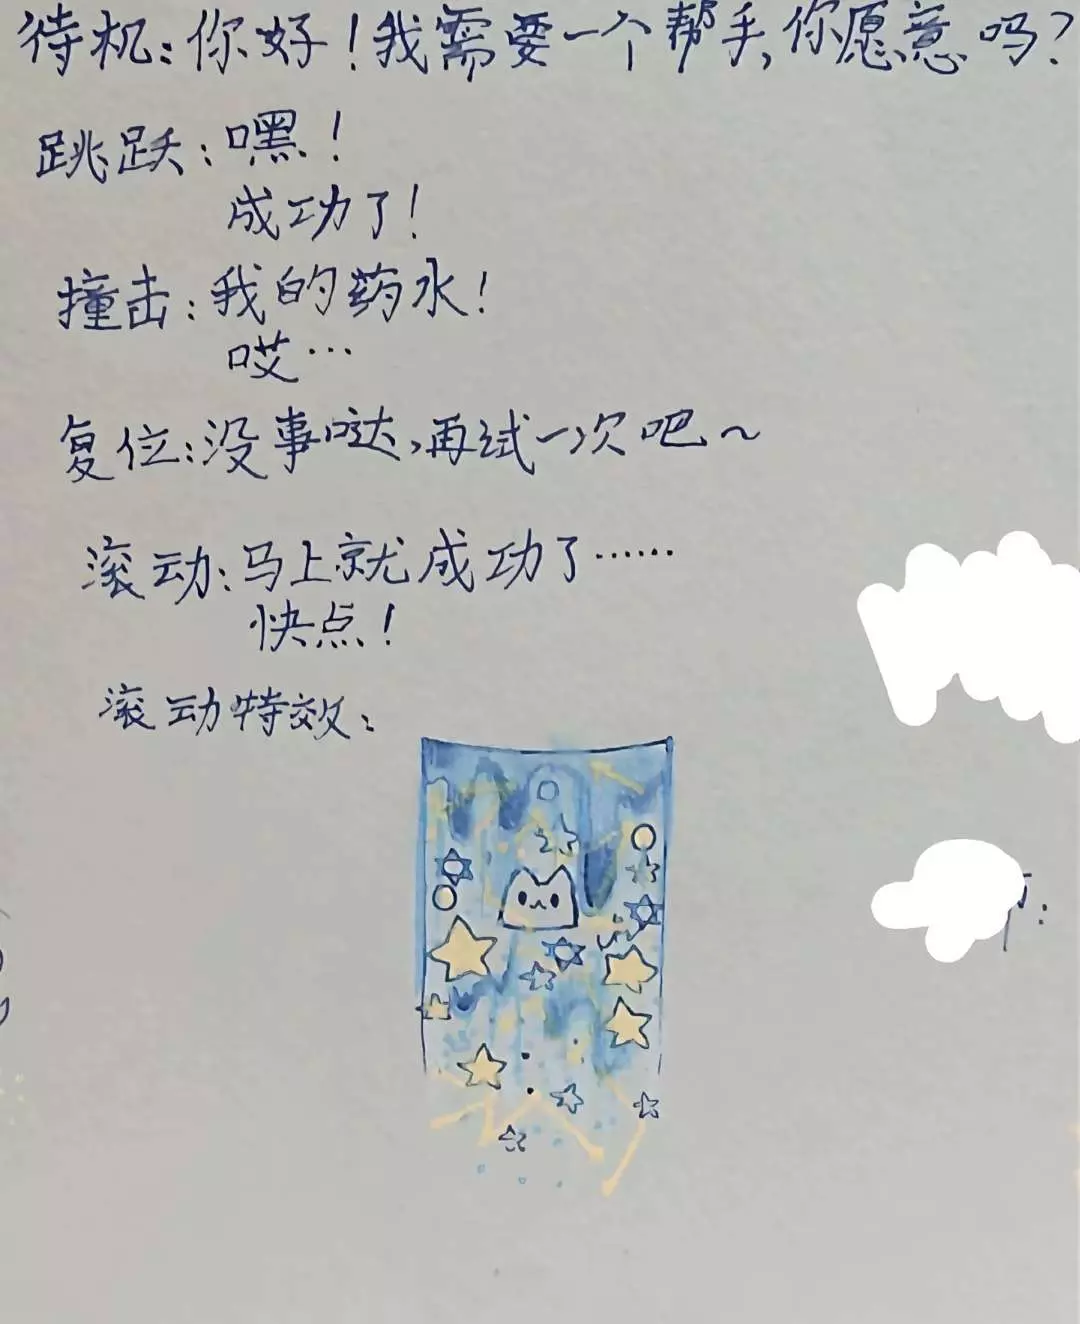 待机：你好！我需要一个帮手，你愿意吗？
跳跃：嘿！
成功了！
撞击：我的药水！
哎…
复位：没事哒，再试一次吧～
滚动：马上就成功了……
快点！
滚动特效：